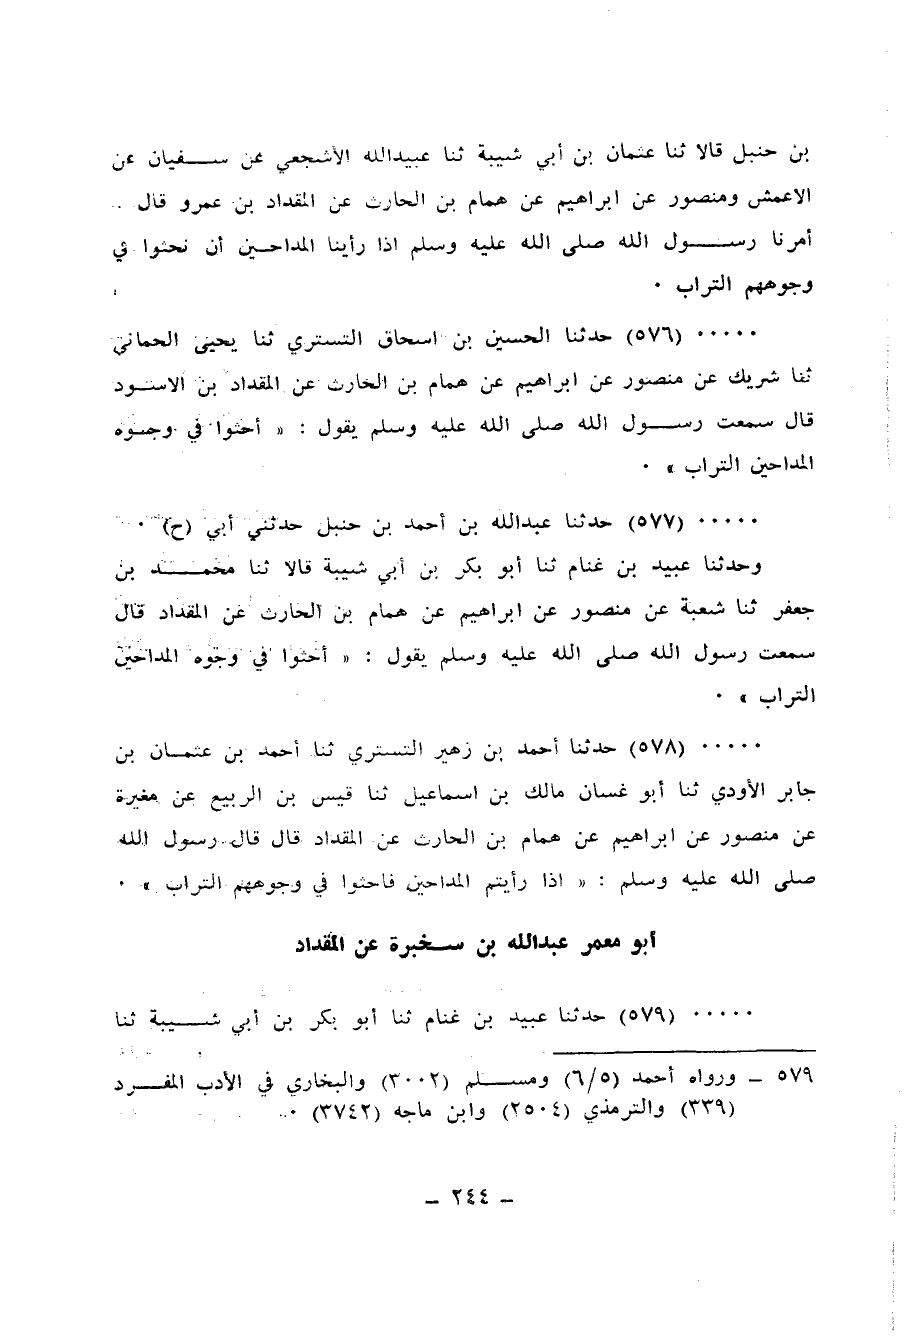 بن حنبل قالا ثنا عثمان بن أبي شيبة ثنا عبيدالله الأشجعي عن سفيان عن
الاعمش ومنصور عن ابراهيم عن همام بن الحارث عن المقداد بن عمرو قال ..
أمرنا رسول الله صلى الله عليه وسلم اذا رأينا المداحين أن نحثوا في
وجوههم التراب ٠
٠٠٠٠٠ (٥٧٦) حدثنا الحسين بن اسحاق التستري ثنا يحيى الحماني
ثنا شريك عن منصور عن ابراهيم عن همام بن الحارث عن المقداد بن الاسود
قال سمعت رسول الله صلى الله عليه وسلم يقول : « أحثوا في وجوه
المداحين التراب » ٠
٠٠٠٠٠ (٥٧٧) حدثنا عبدالله بن أحمد بن حنبل حدثني أبي (ح) ٠
وحدثنا عبيد بن غنام ثنا أبو بكر بن أبي شيبة قالا ثنا محمد بن
جعفر ثنا شعبة عن منصور عن ابراهيم عن همام بن الحارث عن المقداد قال
سمعت رسول الله صلى الله عليه وسلم يقول : « أحثوا في وجوه المداحين
التراب » ٠
٠٠٠٠٠ (٥٧٨) حدثنا أحمد بن زهير التستري ثنا أحمد بن عثمان بن
جابر الأودي ثنا أبو غسان مالك بن اسماعيل ثنا قيس بن الربيع عن مغيرة
عن منصور عن ابراهيم عن همام بن الحارث عن المقداد قال قال رسول الله
صلى الله عليه وسلم : « اذا رأيتم المداحين فاحثوا في وجوههم التراب » ٠
أبو معمر عبدالله بن سخبرة عن المقداد
٠٠٠٠٠ (٥٧٩) حدثنا عبيد بن غنام ثنا أبو بكر بن أبي شيبة ثنا
٥٧٩ ـ ورواه أحمد (٦/٥) ومسلم (٣٠٠٢) والبخاري في الأدب المفرد
(٣٣٩) والترمذي (٢٥٠٤) وابن ماجه (٣٧٤٢) ٠
ـ ٢٤٤ ـ